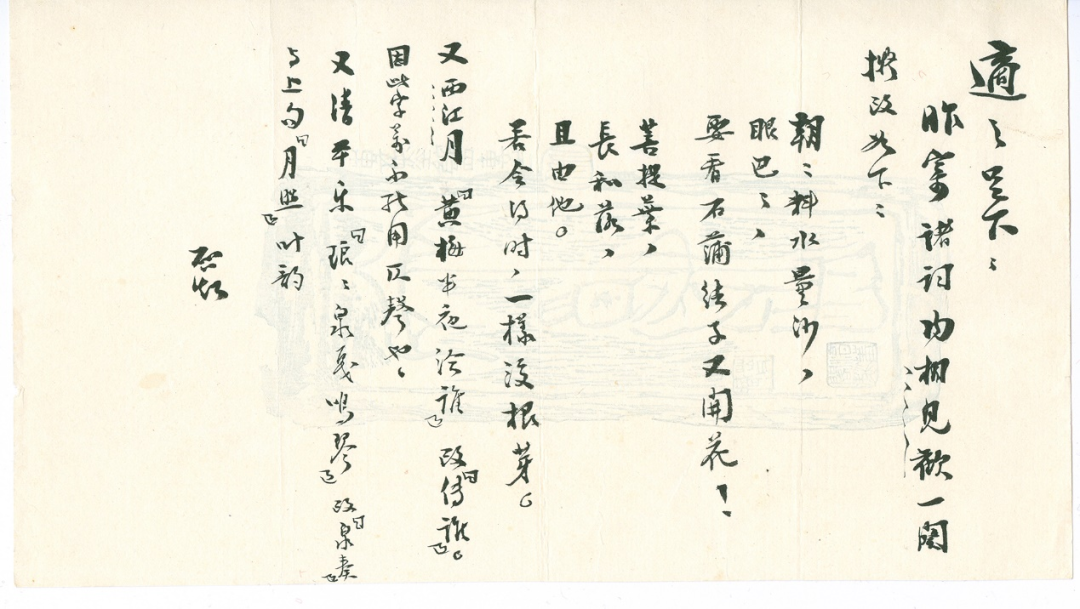 適之足下：
昨寄諸詞內相見歡一闋
擬改如下：
朝朝料水量沙，
眼巴巴，
要看石蒲結子又開花！
菩提葉，
長和落，
且由他。
若會得時，一樣沒根芽。
又西江月「黃梅半夜⋯誰」改「傳誰」。
因此字萬不能用仄聲也，
又清平樂「琅琅泉戛鳴琴」改「泉奏」
與上句「月照」叶韵